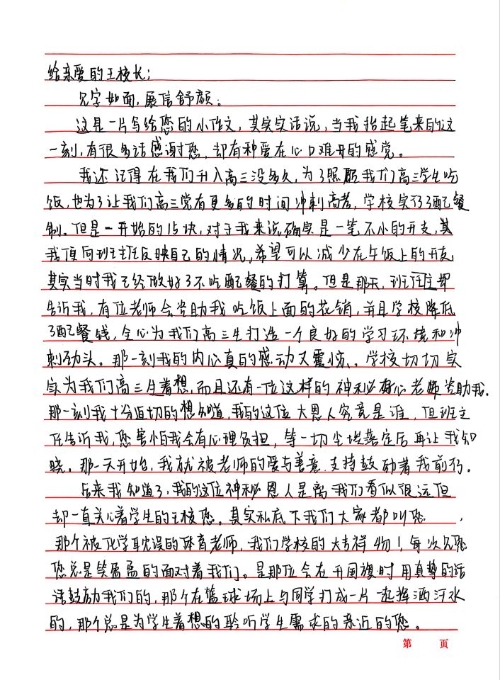 给亲爱的王校长：
见字如面，展信舒颜。
这是一片写给您的小作文，其实实话说，当我抬起笔来的这
一刻，有很多话感谢您，却有种爱在心口难开的感觉。
我还记得在我们升入高三没多久，为了照顾我们高三学生吃
饭，也为了让我们高三党有更多的时间冲刺高考，学校实行了配餐
制。但是一开始的15块，对于我来说确实是一笔不小的开支，其
我顶向班主任反映自己的情况，希望可以减少在午饭上的开支
其实当时我已经做好了不吃配餐的打算。但是那天，班主任却
告诉我，有位老师会资助我吃饭上面的花销，并且学校降低
了配餐钱，全心为我们高三生打造一个良好的学习环境和冲
刺劲头。那一刻我的内心真的感动又震惊，学校切切实
实为我们高三生着想，而且还有一位这样的神秘有心老师资助我。
那一刻我十分迫切的想知道，我的这位大恩人究竟是谁，但班主
任告诉我，您害怕我会有心理负担，等一切尘埃落定后再让我知
晓。那一天开始，我就被老师的爱与善意支持鼓励着我前行。
后来我知道了，我的这位神秘恩人是离我们看似很远但
却一直关心着学生的王校您。其实私底下我们大家都叫您
那个被化学耽误的体育老师，我们学校的大吉祥物！每次见您
您总是笑眯眯的面对着我们。是那位会在升国旗时用真挚的话
语鼓励我们的，那个在篮球场上与同学打成一片起挥洒汗水
的，那个总是为学生着想的聆听学生需求的亲近的您。
第 页